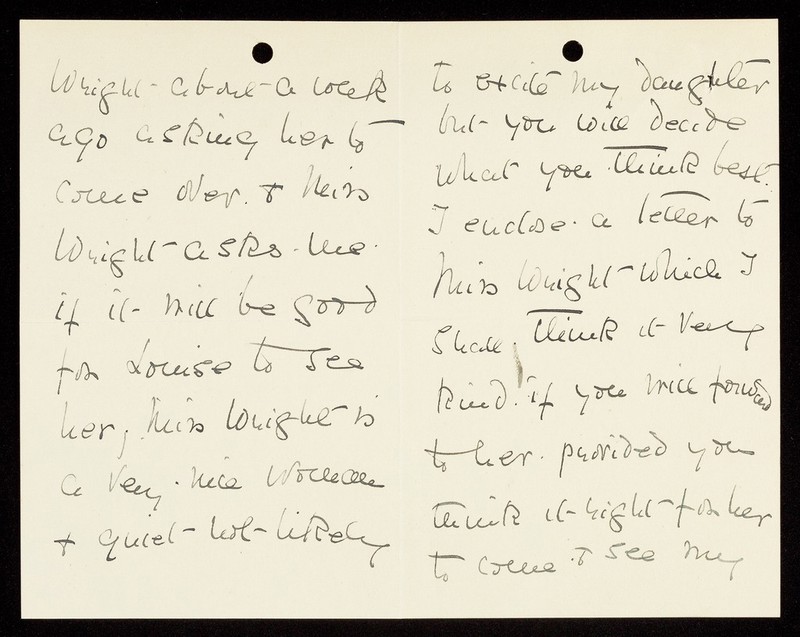 Wright - about - a week
ago asking her to
come over. & Miss
Wright - asks. me.
if it - will be good
for Louise to see
her, Miss Wright is
a very. nice woman
& quiet - not - likely
to excite my daughter
but - you will decide
what you think best.
I enclose. a letter to
Miss Wright - which I
shall. think it very
kind. if you will forward
to her. provided you
think it - right - for her
to come & see my